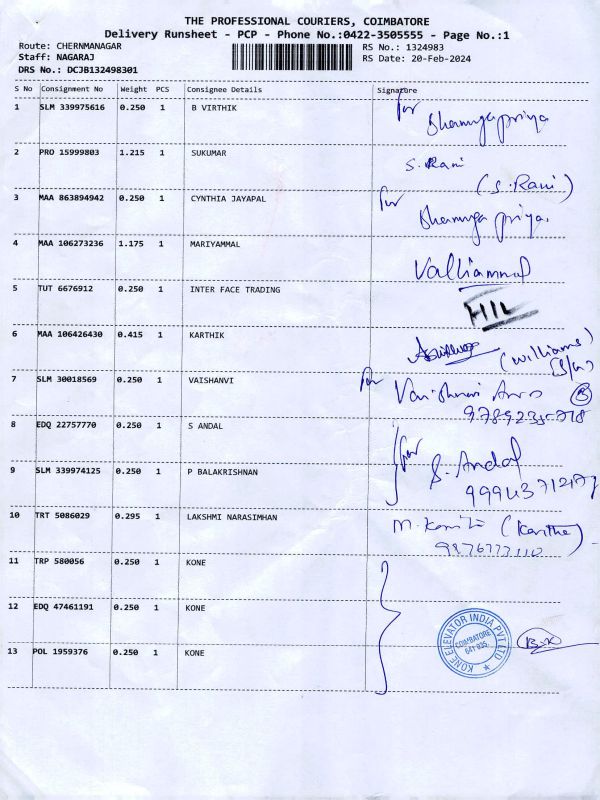 THE PROFESSIONAL COURIERS, COIMBATORE
Delivery Runsheet - PCP - Phone No.:0422-3505555 - Page No.:1
Route: CHERNMANAGAR
Staff: NAGARAJ
DRS No.: DCJB132498301
RS No.: 1324983
RS Date: 20-Feb-2024
S No Consignment No Weight PCS Consignee Details Signature
1 SLM 339975616 0.250 1 B VIRTHIK for
2 PRO 15999803 1.215 1 SUKUMAR S. Rani
(S. Rani)
3 MAA 863894942 0.250 1 CYNTHIA JAYAPAL for
4 MAA 106273236 1.175 1 MARIYAMMAL Valliammal
5 TUT 6676912 0.250 1 INTER FACE TRADING
6 MAA 106426430 0.415 1 KARTHIK (Williams)
7 SLM 30018569 0.250 1 VAISHANVI for
8 EDQ 22757770 0.250 1 S ANDAL for
9 SLM 339974125 0.250 1 P BALAKRISHNAN S. Andal
10 TRT 5086029 0.295 1 LAKSHMI NARASIMHAN
11 TRP 580056 0.250 1 KONE
12 EDQ 47461191 0.250 1 KONE
13 POL 1959376 0.250 1 KONE
KONE ELEVATOR INDIA PVT LTD
COIMBATORE
641 035.